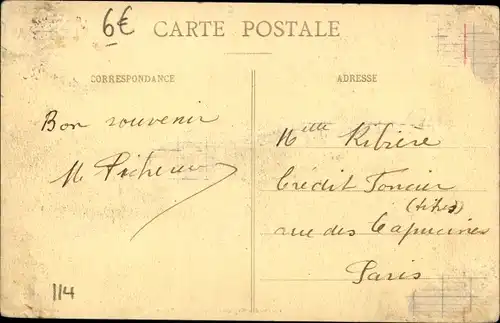 6€
CARTE POSTALE
CORRESPONDANCE
ADRESSE
Bon souvenir
M.
Melle Ribière
Crédit Foncier
(titres)
rue des Capucines
Paris
114